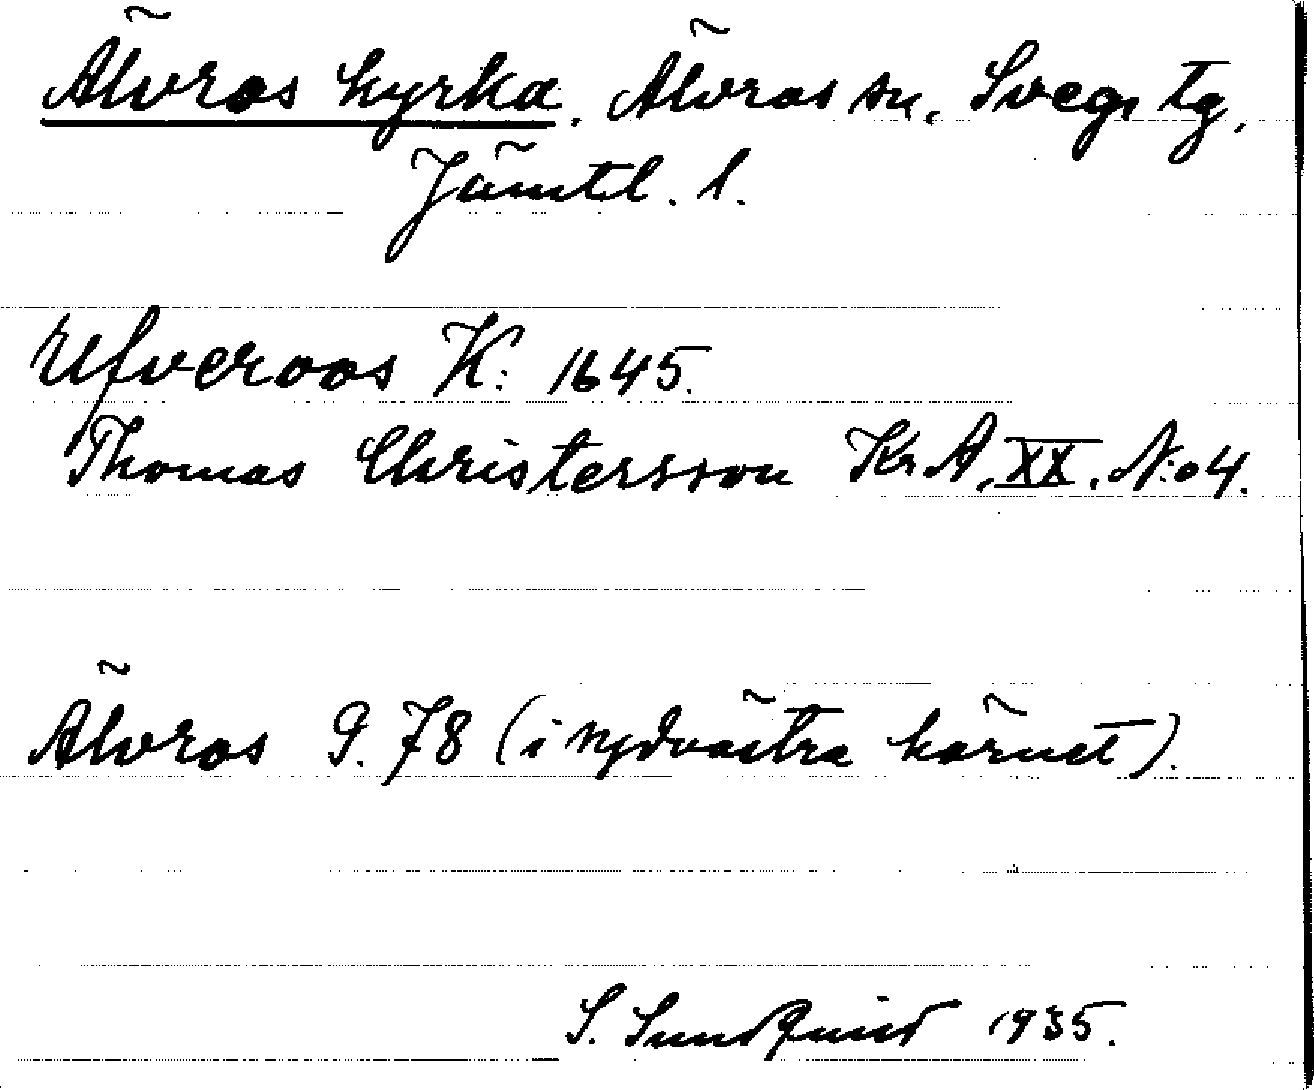 Älvros kyrka. Älvros sn. Svegs tg,
Jämtl. l.
Elfveroos K: 1645.
Thomas Christersson Kr. A. XX. N:o 4.
Älvros G. 78 (i sydvästra hörnet).
S. Sundquist 1935.